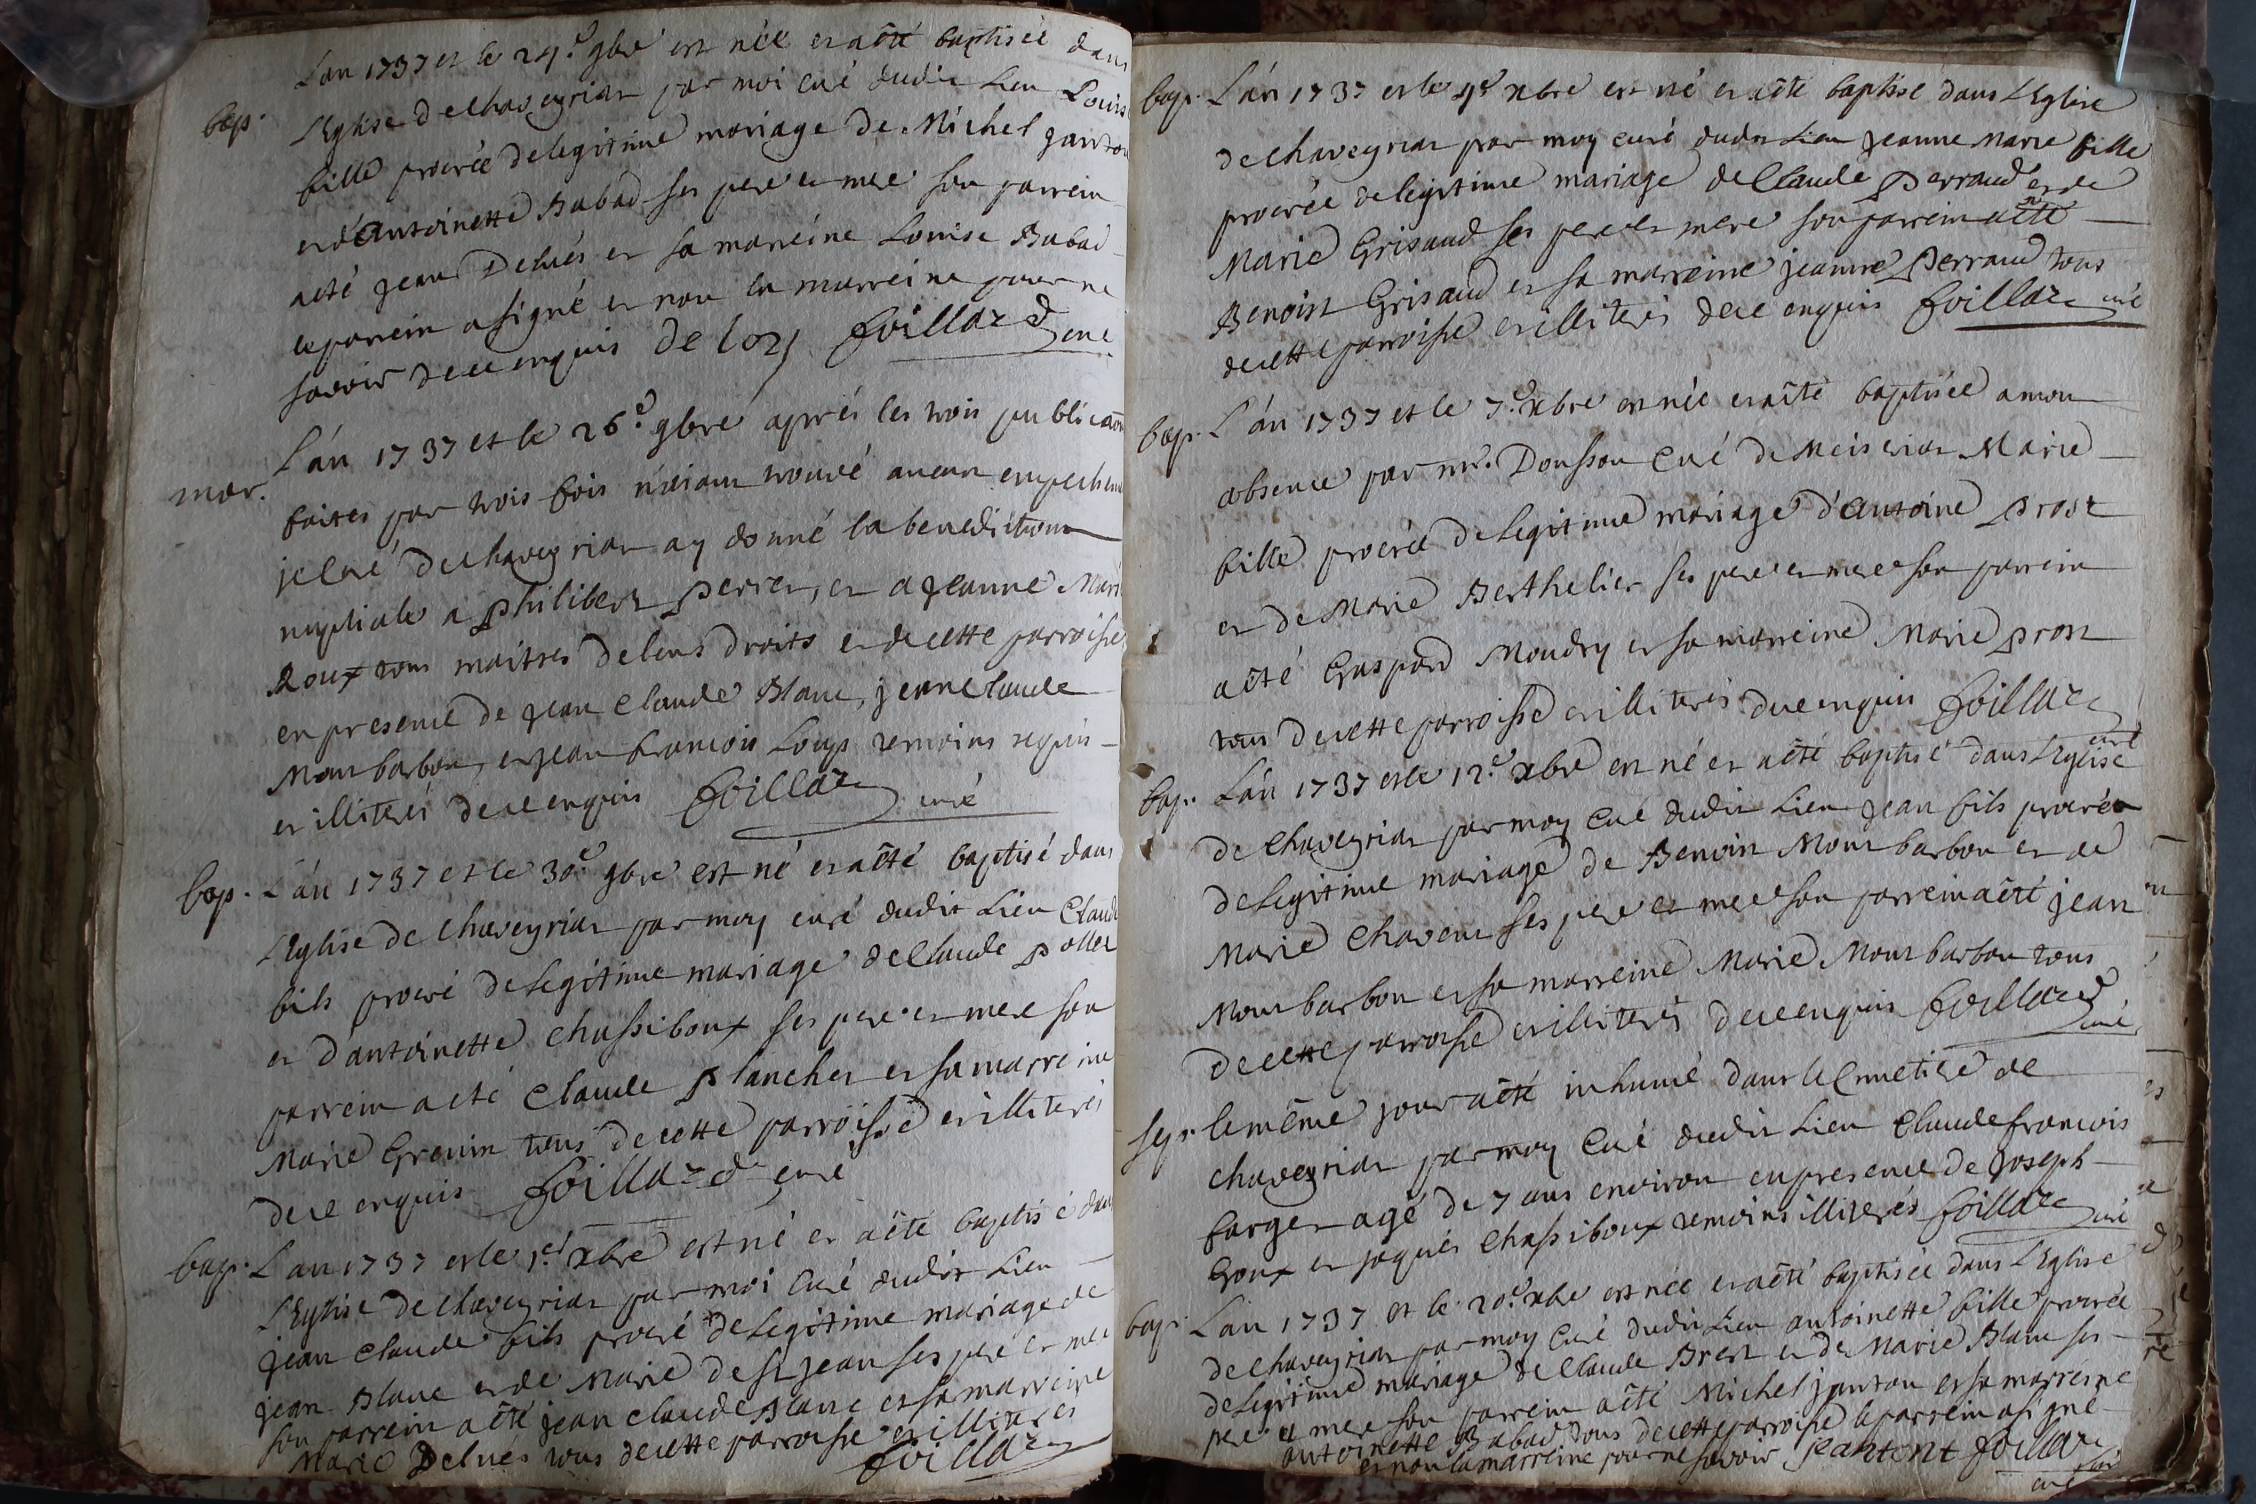 L'an 1737 et le 24e 9bre est née et a êté baptisée dans
bap. L'Eglise de chaveyriat par moi curé dudit Lieu Louise
fille procréée de legitime mariage de Michel janton
et d'antoinette Babad ses pere et mere son parrein
a été jean Delués et sa marreine Louise Babad
le parrein a signé et non la marreine pour ne
savoir de ce enquis Foillard curé
L'án 1737 et le 26e 9bre aprés les trois publications
mar. faites par trois fois n'étant trouvé aucun empechem
je Curé de chaveyriat ay donné la benediction
nuptiale a philibert perret, et a jeanne Marie
Roux tous maitres de leurs droits et de cette parroisse
en presence de jean claude Blanc, jean claude
Montbarbon, et jean francois Loup temoins requis
et illiterés de ce enquis Foillard curé
bap. L'án 1737 et le 30e 9bre est né et a êté baptisé dans
L'Eglise de chaveyriat par moy curé dudit Lieu Claude
fils procréé de Legitime mariage de Claude pollet
et d'antoinette chassiboux ses pere et mere son
parrein a eté claude plancher et sa marreine
Marie Grenin tous de cette parroisse et illiterés
de ce enquis Foillard curé
bap. L'an 1737 et le 1er xbre est né et a êté baptisé dans
L'Eglise de chaveyriat par moi Curé dudit Lieu
jean claude fils procréé de Legitime mariage de
jean Blanc et de Marie de St jean ses pere et mere
son parrein a êté jean claude Blanc et sa marreine
Marie Delues tous de cette parroisse et illiterés
Foillard
bap. L'án 1737 et le 4e xbre est né et a êté baptisé dans L'Eglise
de chaveyriat par moy curé dudit Lieu jeanne Marie fille
procréée de legitime mariage de Claude perraud et de
Marie Grisaud ses pere et mere son parrein a êté
Benoist Grisaud et sa marreine jeanne perraud tous
de cette parroisse et illiterés de ce enquis Foillard curé
bap. L'án 1737 et le 7e xbre est née et a êté baptisée a mon
absence par mr. Dousson Curé de Meisseriat Marie
fille procréée de Legitime mariage d'antoine prost
et de Marie Berthelier ses pere et mere son parrein
a êté Gaspard Moudry et sa marreine Marie prost
tous de cette parroisse et illiterés de ce enquis Foillard
curé
bap. L'án 1737 et le 12e xbre est né et a êté baptisé dans L'Eglise
de Chaveyriat par moy Curé dudit Lieu jean fils procréé
de Legitime mariage de Benoit Montbarbon et de
Marie Chavent ses pere et mere son parrein a êté jean
Montbarbon et sa marreine Marie Montbarbon tous
de cette parroisse et illiterés de ce enquis Foillard
curé
sep. le même jour a êté inhumé dans le Cimetiere de
chaveyriat par moy Curé dudit Lieu Claude francois
farget agé de 7 ans environ en presence de joseph
Goux et jaques chassiboux temoins illiterés Foillard curé
bap. L'án 1737 et le 20e xbre est née et a êté baptisée dans L'Eglise
de chaveyriat par moy Curé dudit Lieu antoinette fille procréée
de Legitime mariage de Claude Brest et de Marie Blanc ses
pere et mere son parrein a êté Michel janton et sa marreine
antoinette Babad tous de cette parroisse le parrein a signé
et non la marreine pour ne savoir Jantont Foillard
curé